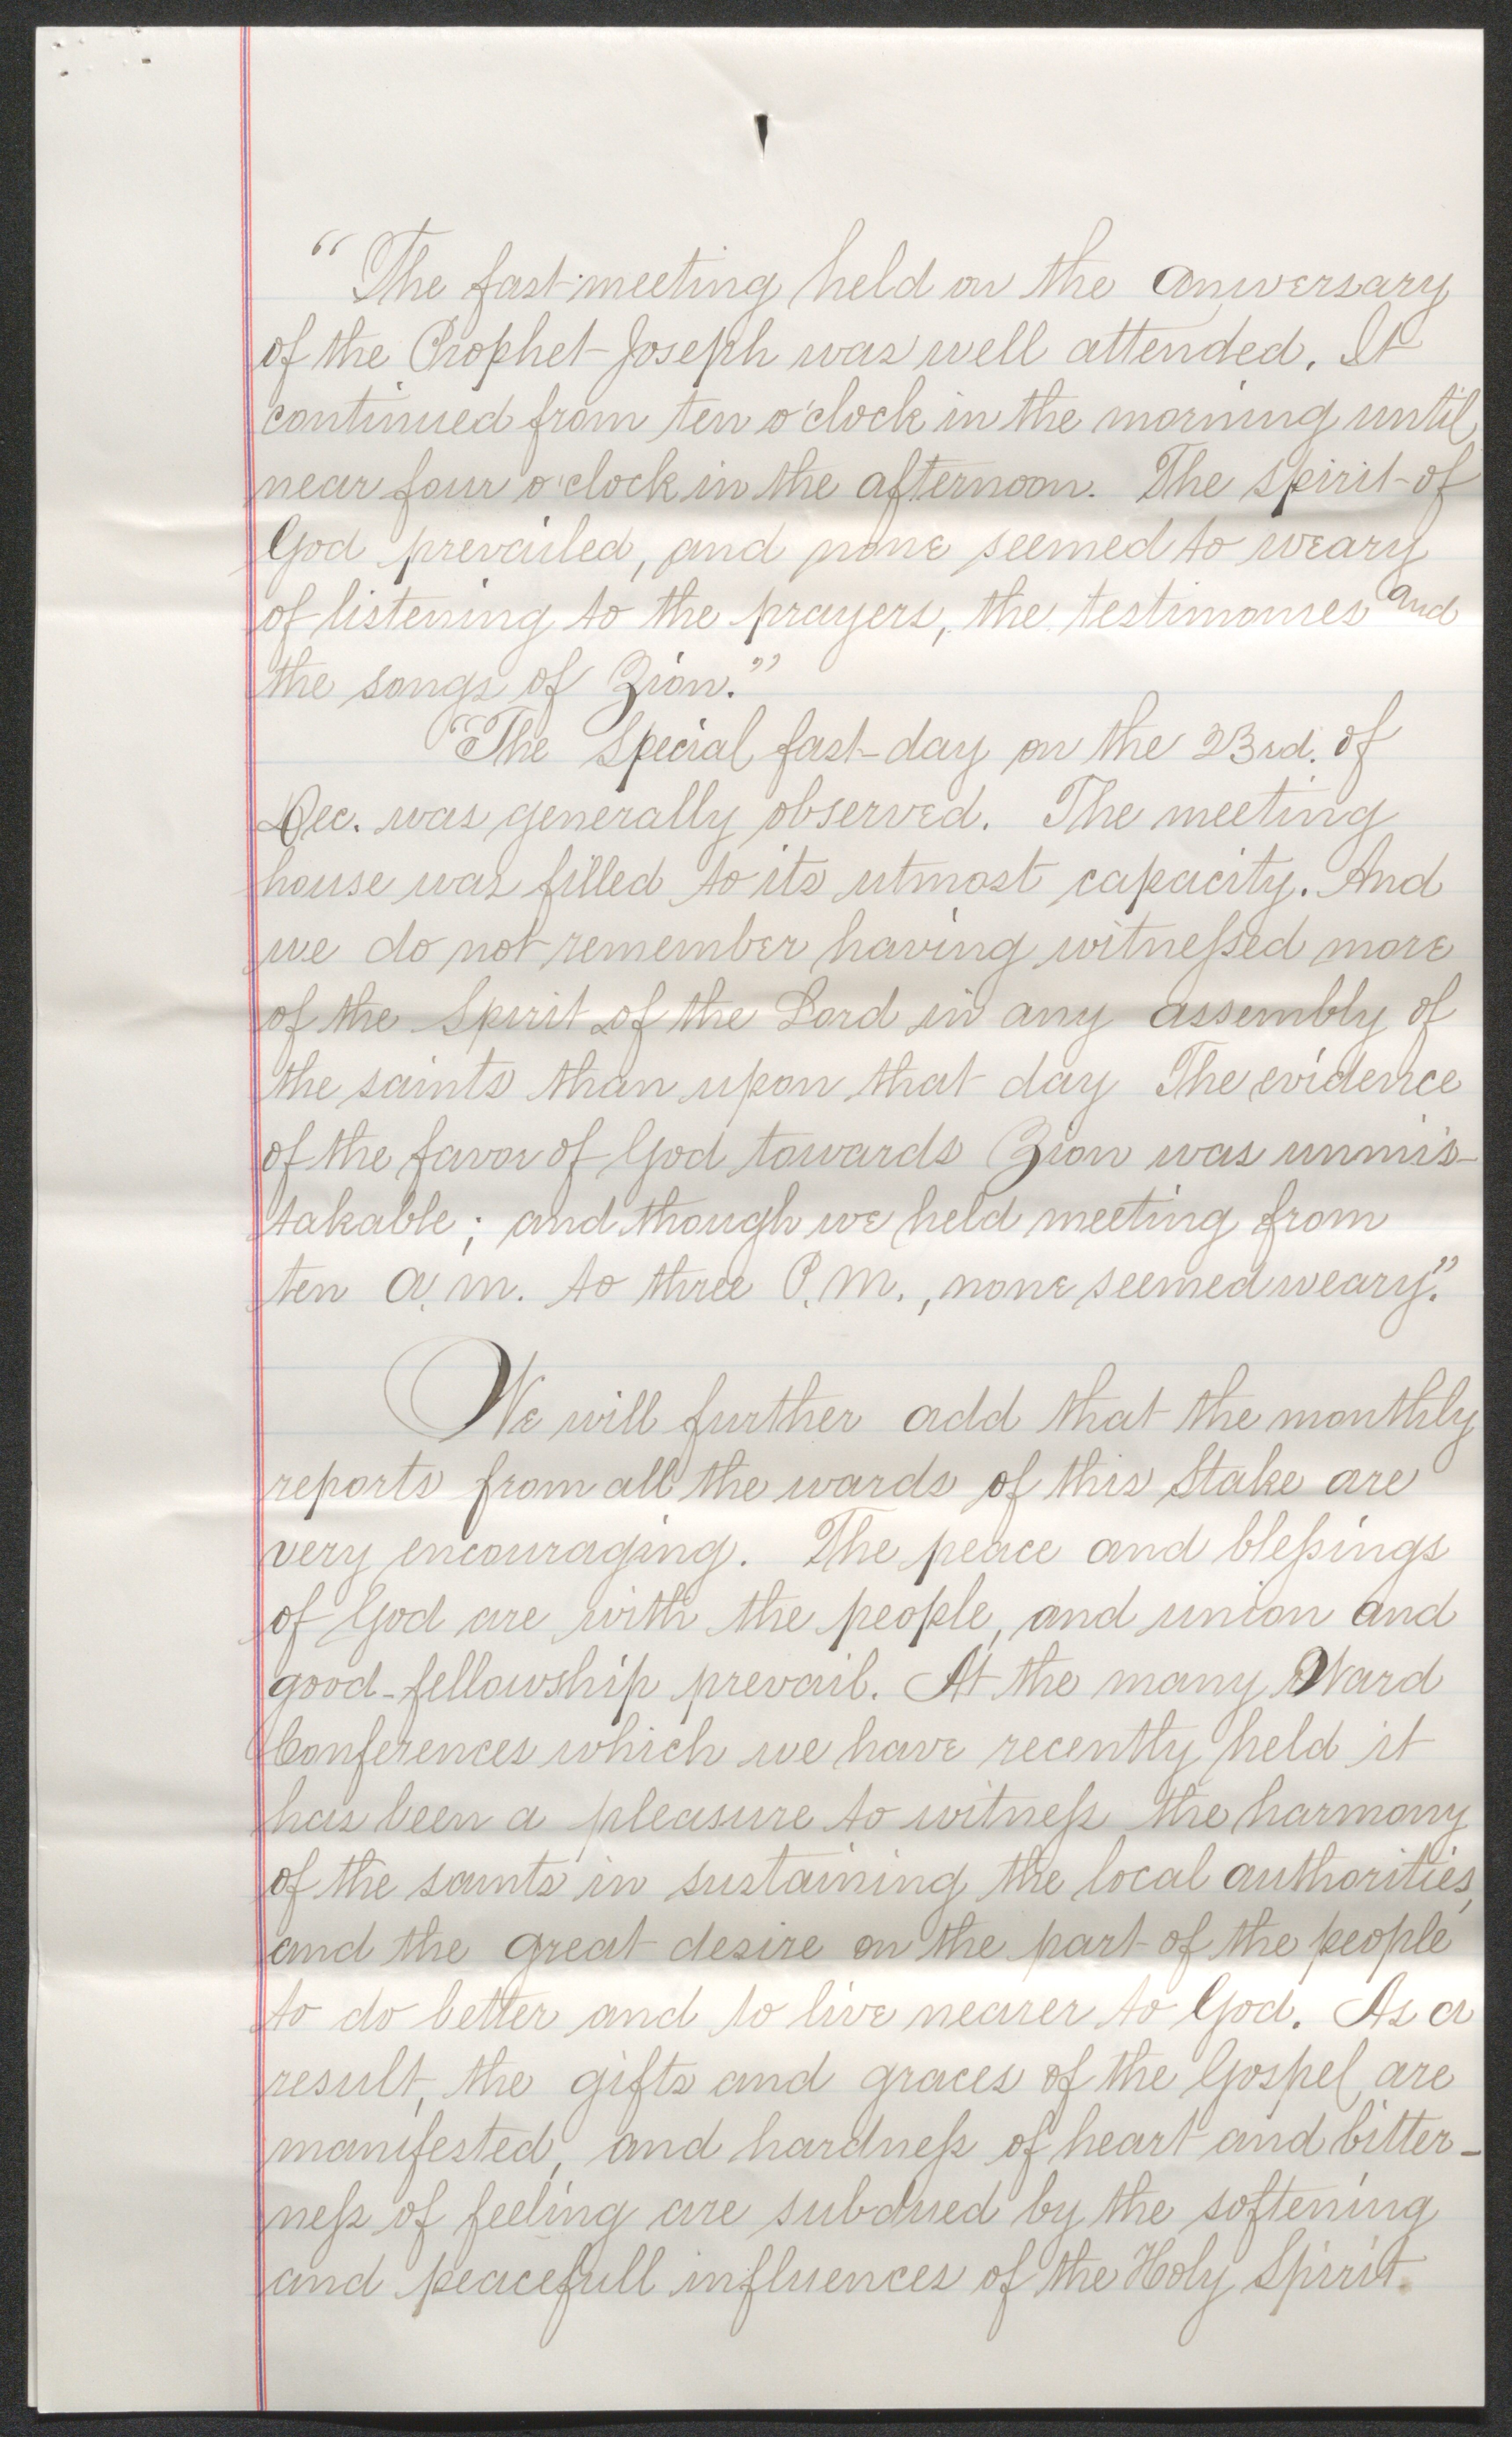 “The fast-meeting held on the aniversary
of the Prophet Joseph was well attended. It
continued from ten o'clock in the morning until
near four o'clock in the afternoon. The spirit of
God prevailed, and none seemed to weary
of listening to the prayers, the testimonies and
the songs of Zion.”
“The Special fast-day on the 23rd. of
Dec. was generally observed. The meeting
house was filled to its utmost capacity. And
we do not remember having witnessed more
of the Spirit of the Lord in any assembly of
the saints than upon that day The evidence
of the favor of God towards Zion was unmis-
takable; and though we held meeting from
ten a.m. to three P.M., none seemed weary.”
We will further add that the monthly
reports from all the wards of this Stake are
very encouraging. The peace and blessings
of God are with the people, and union and
good-fellowship prevail. At the many Ward
Conferences which we have recently held it
has been a pleasure to witness the harmony
of the saints in sustaining the local authorities,
and the great desire on the part of the people
to do better and to live nearer to God. As a
result, the gifts and graces of the Gospel are
manifested, and hardness of heart and bitter-
ness of feeling are subdued by the softening
and peacefull influences of the Holy Spirit.